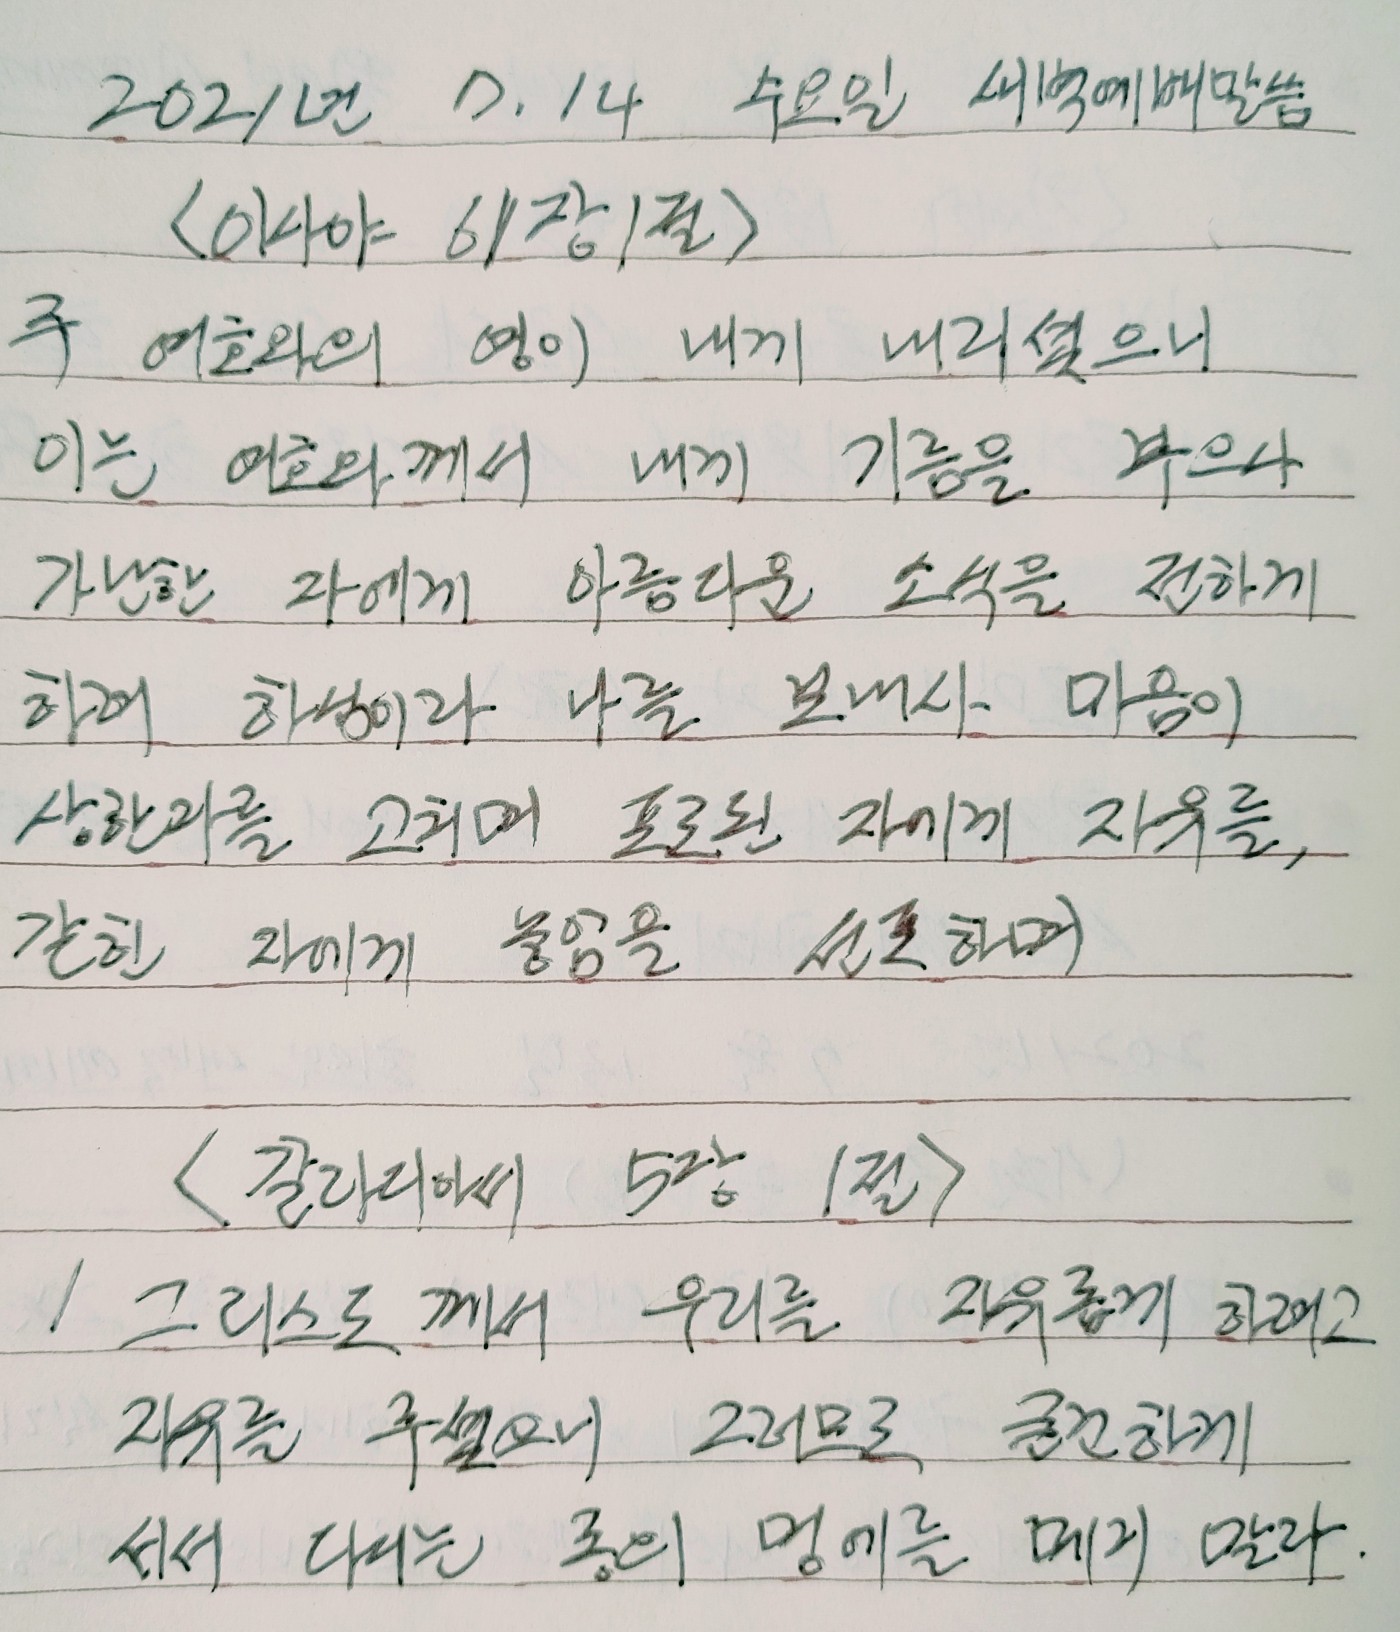 2021년 7. 14 수요일 새벽예배말씀
<이사야 61장1절>
주 여호와의 영이 내게 내리셨으니
이는 여호와께서 내게 기름을 부으사
가난한 자에게 아름다운 소식을 전하게
하려 하심이라 나를 보내사 마음이
상한자를 고치며 포로된 자에게 자유를,
갇힌 자에게 놓임을 선포하며
<갈라디아서 5장 1절>
1 그리스도께서 우리를 자유롭게 하려고
자유를 주셨으니 그러므로 굳건하게
서서 다시는 종의 멍에를 메지 말라.